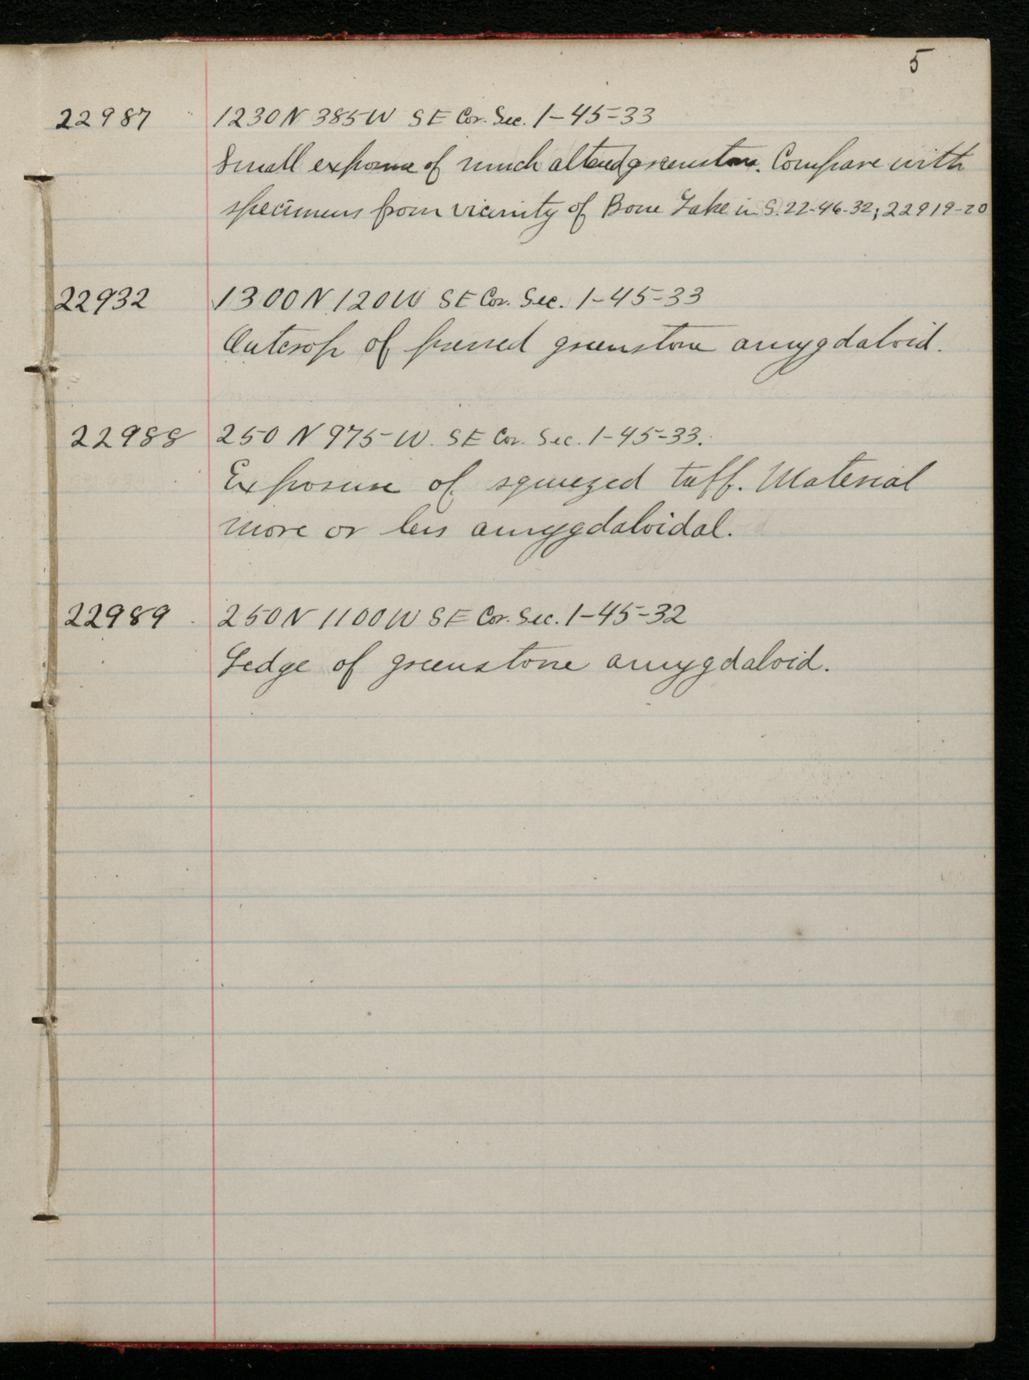 5
22987 1230 N 385 W SE Cor. Sec. 1-45-33
Small exposure of much altered greenstone. Compare with
specimens from vicinity of Bone Lake in S. 22-46-32; 22919-20
22932 1300 N 120 W SE Cor. Sec. 1-45-33
Outcrop of pressed greenstone amygdaloid.
22988 250 N 975 W. SE Cor. Sec. 1-45-33.
Exposure of squeezed tuff. Material
more or less amygdaloidal.
22989 250 N 1100 W SE Cor. Sec. 1-45-32
Ledge of greenstone amygdaloid.